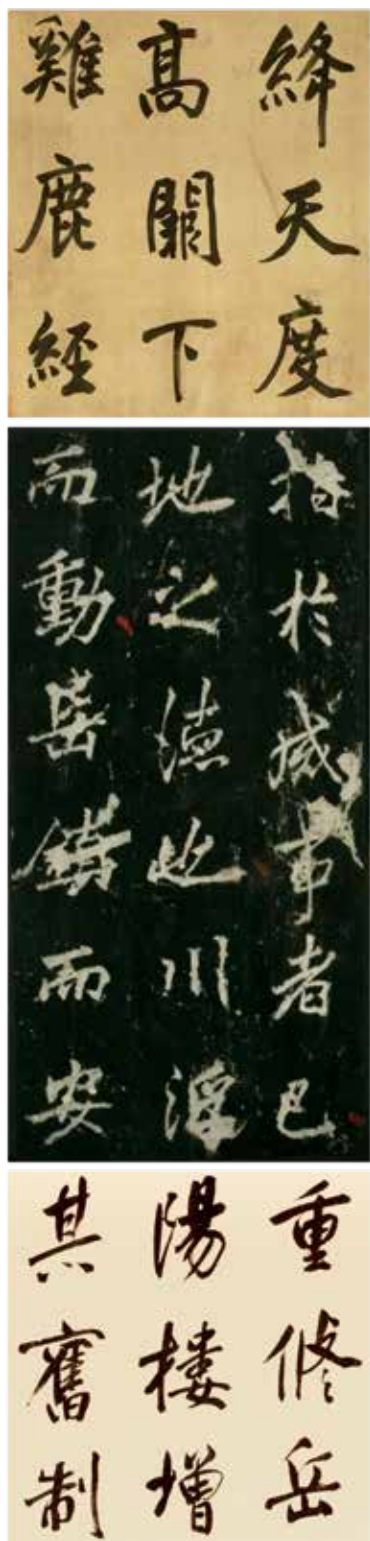 絳天度
高闕下
雞鹿經
指於成事者已
地之德也川浮
而動岳鎮而安
重修岳
陽樓增
其舊制